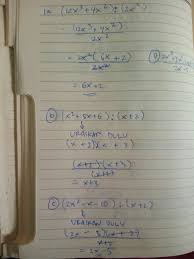 1a. (12x³ + 4x²) : (2x²)
= 12x³ + 4x²
2x²
= 2x² (6x + 2)
2x²
= 6x + 2
b) (x² + 5x + 6) : (x + 2)
URAIKAN DULU
(x + 2)(x + 3)
(x + 2)(x + 3)
(x + 2)
= x + 3
c) (2x² - x - 10) : (x + 2)
URAIKAN DULU
(2x - 5)(x + 2)
x + 2
= 2x - 5